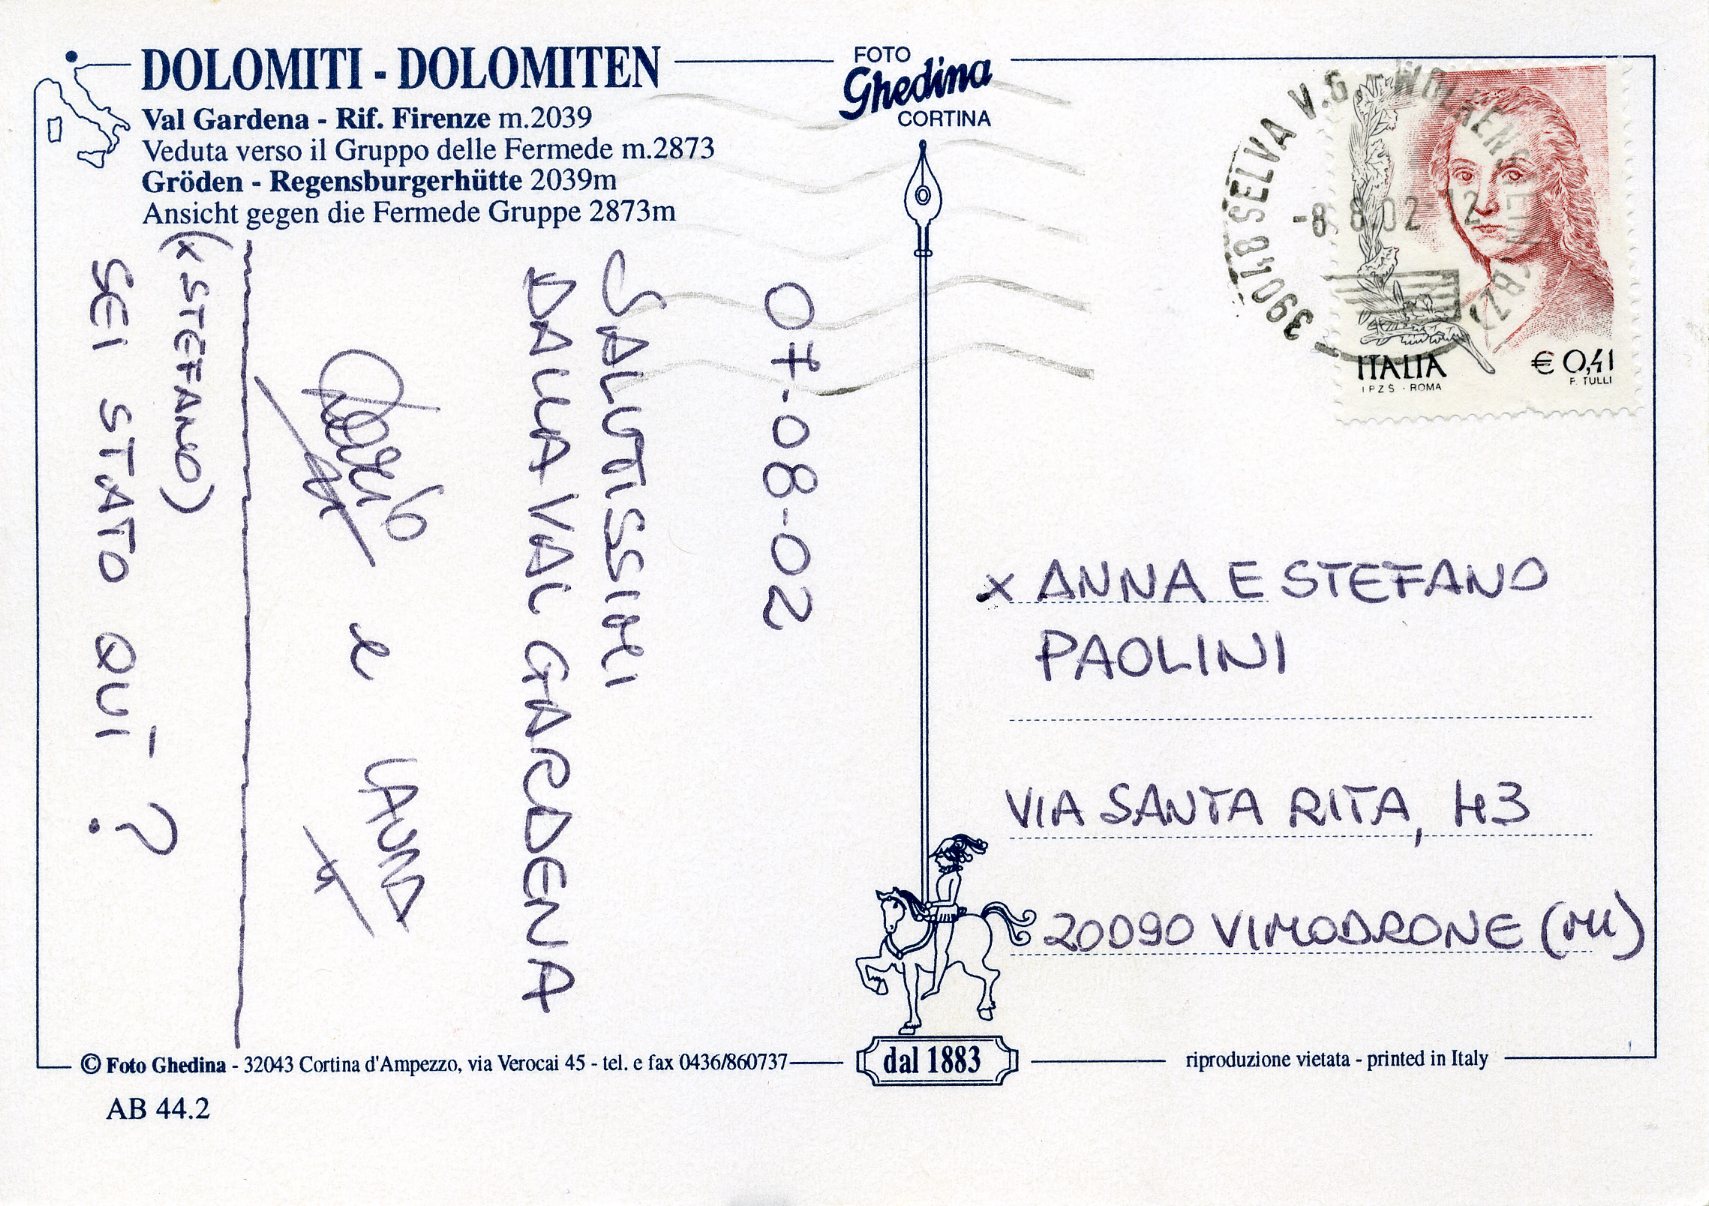 DOLOMITI - DOLOMITEN
Val Gardena - Rif. Firenze m.2039
Veduta verso il Gruppo delle Fermede m.2873
Gröden - Regensburgerhütte 2039m
Ansicht gegen die Fermede Gruppe 2873m
FOTO
Ghedina
CORTINA
39018 SELVA V.G. - WOLKENSTEIN (BZ)
-8.8.02-12
ITALIA
I.P.Z.S. - ROMA
€ 0,41
F. TULLI
07-08-02
SALUTISSIMI
DALLA VAL GARDENA
e LAURA
(x STEFANO)
SEI STATO QUÌ?
x ANNA E STEFANO
PAOLINI
VIA SANTA RITA, 43
20090 VIMODRONE (MI)
© Foto Ghedina - 32043 Cortina d'Ampezzo, via Verocai 45 - tel. e fax 0436/860737
dal 1883
riproduzione vietata - printed in Italy
AB 44.2